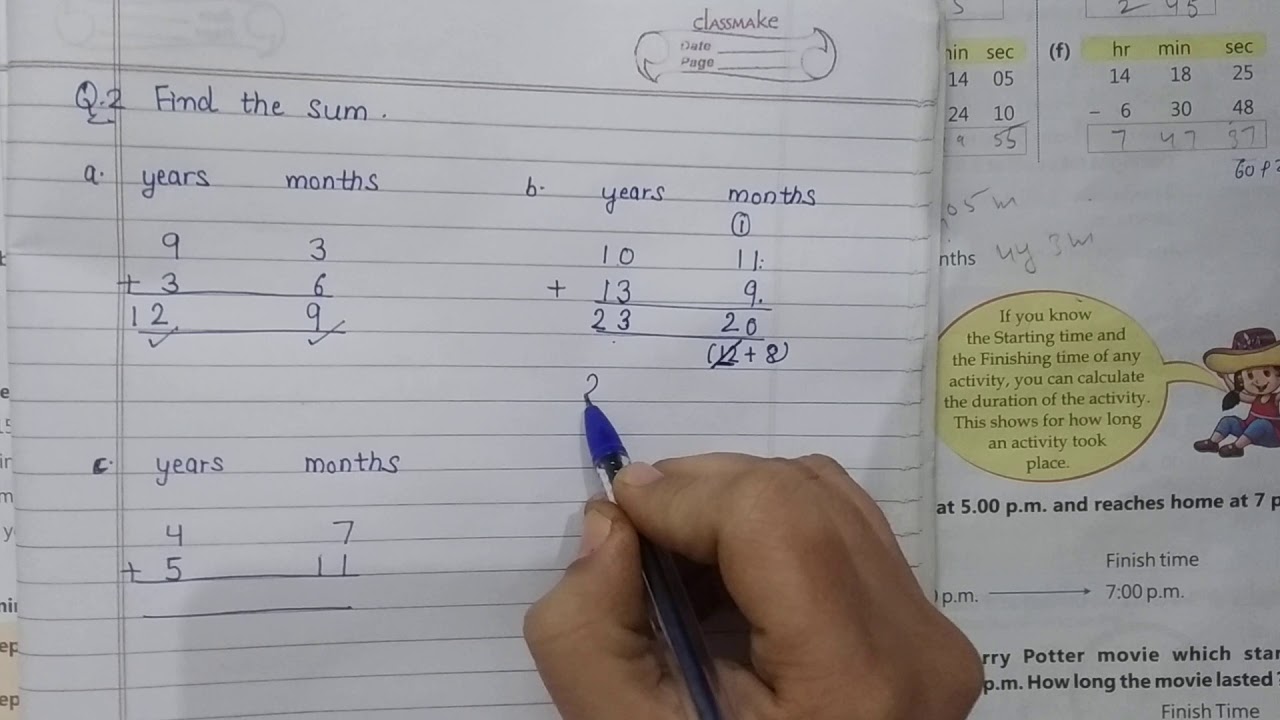 classmake
Date
Page
Q.2 Find the sum.
a. years months
9 3
+ 3 6
12 9
b. years months
1
10 11
+ 13 9
23 20
(12 + 8)
2
c. years months
4 7
+ 5 11
2 45
sec
14 05
24 10
55
(f) hr min sec
14 18 25
- 6 30 48
7 47 37
05 m
4y 3m
If you know
the Starting time and
the Finishing time of any
activity, you can calculate
the duration of the activity.
This shows for how long
an activity took
place.
at 5.00 p.m. and reaches home at 7
Finish time
p.m. 7:00 p.m.
Potter movie which
p.m. How long the movie lasted
Finish Time